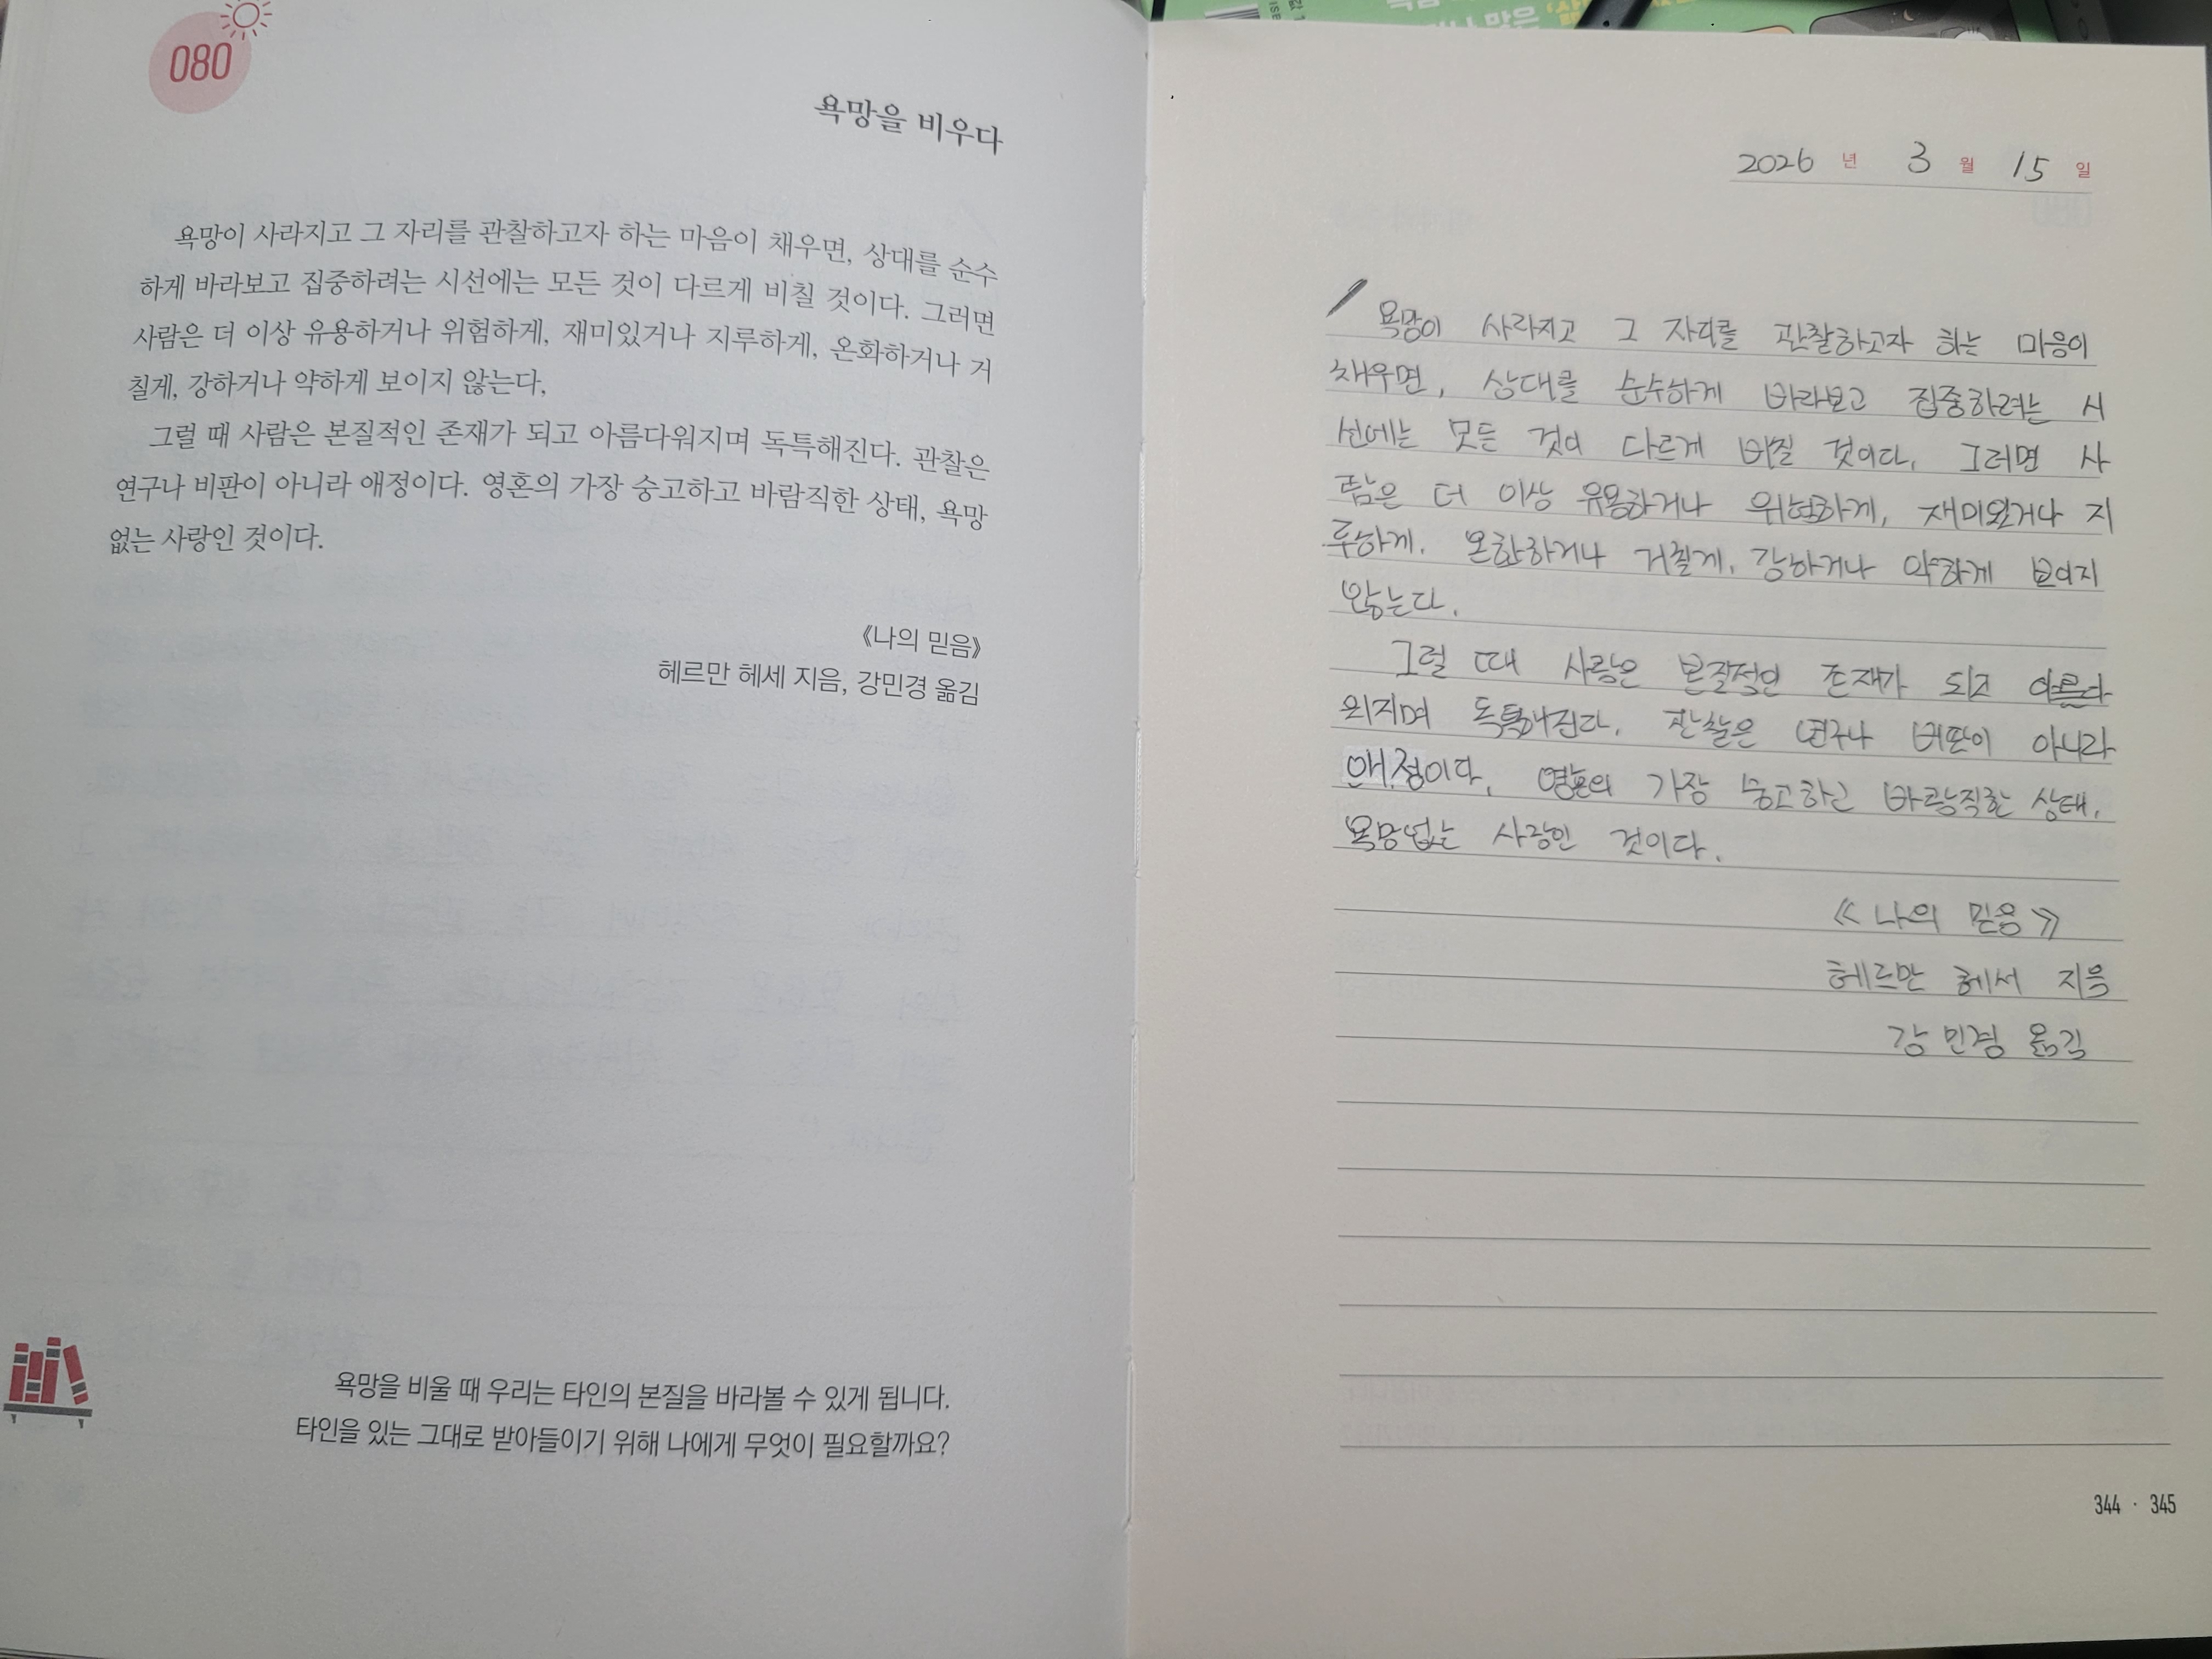 080
욕망을 비우다
욕망이 사라지고 그 자리를 관찰하고자 하는 마음이 채우면, 상대를 순수
하게 바라보고 집중하려는 시선에는 모든 것이 다르게 비칠 것이다. 그러면
사람은 더 이상 유용하거나 위험하게, 재미있거나 지루하게, 온화하거나 거
칠게, 강하거나 약하게 보이지 않는다.
그럴 때 사람은 본질적인 존재가 되고 아름다워지며 독특해진다. 관찰은
연구나 비판이 아니라 애정이다. 영혼의 가장 숭고하고 바람직한 상태, 욕망
없는 사랑인 것이다.
《나의 믿음》
헤르만 헤세 지음, 강민경 옮김
욕망을 비울 때 우리는 타인의 본질을 바라볼 수 있게 됩니다.
타인을 있는 그대로 받아들이기 위해 나에게 무엇이 필요할까요?
2026 년 3 월 15 일
욕망이 사라지고 그 자리를 관찰하고자 하는 마음이
채우면, 상대를 순수하게 바라보고 집중하려는 시
선에는 모든 것이 다르게 비칠 것이다. 그러면 사
람은 더 이상 유용하거나 위험하게, 재미있거나 지
루하게. 온화하거나 거칠게. 강하거나 약하게 보이지
않는다.
그럴 때 사람은 본질적인 존재가 되고 아름다
워지며 독특해진다. 관찰은 연구나 비판이 아니라
애정이다. 영혼의 가장 숭고하고 바람직한 상태.
욕망없는 사랑인 것이다.
《나의 믿음》
헤르만 헤서 지음
강민경 옮김
344 · 345